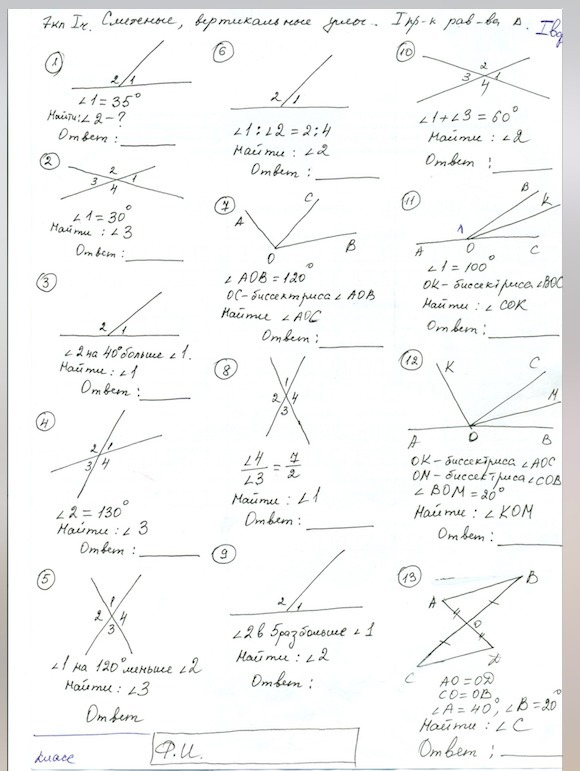 7кл Iч. Смежные, вертикальные углы. I пр-к рав-ва Δ. I вар
1
2 1
∠1 = 35°
Найти: ∠2 - ?
Ответ: ____
2
2
3 1
4
∠1 = 30°
Найти: ∠3
Ответ: ____
3
2 1
∠2 на 40° больше ∠1.
Найти: ∠1
Ответ: ____
4
2 1
3 4
∠2 = 130°
Найти: ∠3
Ответ: ____
5
1
2 4
3
∠1 на 120° меньше ∠2
Найти: ∠3
Ответ
6
2 1
∠1 : ∠2 = 2:4
Найти: ∠2
Ответ: ____
7
A C B
O
∠AOB = 120°
OC - биссектриса ∠AOB
Найти ∠AOC
Ответ: ____
8
1
2 4
3
∠4/∠3 = 7/2
Найти: ∠1
Ответ: ____
9
2 1
∠2 в 5 раз больше ∠1
Найти: ∠2
Ответ:
10
2
3 1
4
∠1 + ∠3 = 60°
Найти: ∠2
Ответ: ____
11
B
K
1
A O C
∠1 = 100°
OK - биссектриса ∠BOC
Найти: ∠COK
Ответ: ____
12
K C
M
A O B
OK - биссектриса ∠AOC
OM - биссектриса ∠COB
∠BOM = 20°
Найти: ∠KOM
Ответ: ____
13
B
A
O
C D
AO = OD
CO = OB
∠A = 40°, ∠B = 20°
Найти: ∠C
Ответ: ____
Класс
Ф.И.